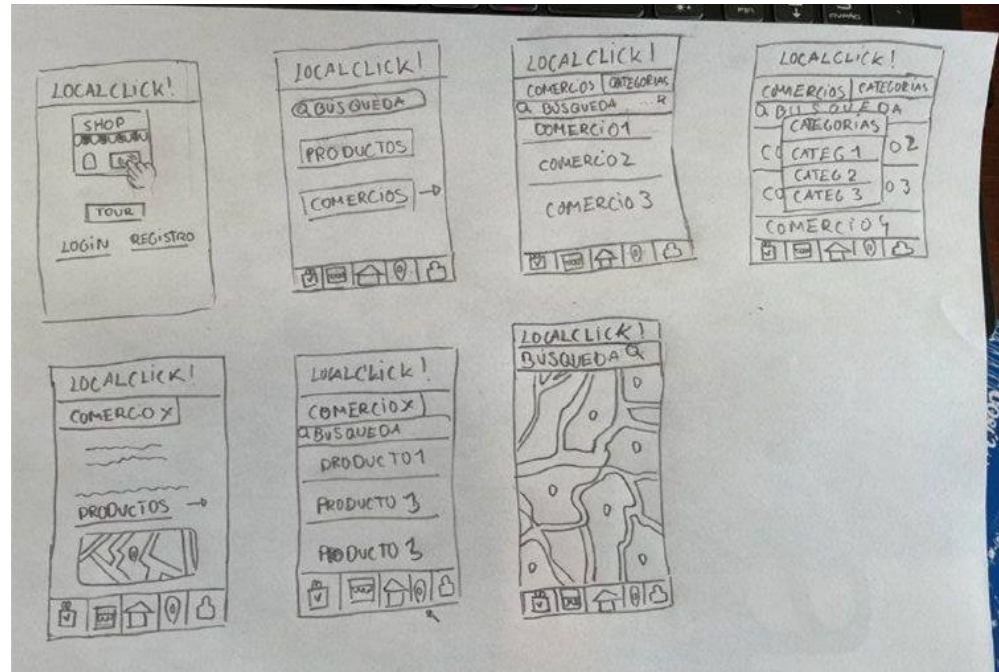 LOCALCLICK!
SHOP
TOUR
LOGIN REGISTRO
LOCALCLICK!
BUSQUEDA
PRODUCTOS
COMERCIOS
LOCALCLICK!
COMERCIOS CATEGORIAS
BUSQUEDA
COMERCIO1
COMERCIO2
COMERCIO 3
LOCALCLICK!
COMERCIOS CATEGORIAS
BUSQUEDA
CATEGORIAS
CO CATEG 1 O2
CATEG 2
CO CATEG 3 O 3
COMERCIO 4
LOCALCLICK!
COMERCIO X
PRODUCTOS
LOCALCLICK!
COMERCIO X
BUSQUEDA
PRODUCTO 1
PRODUCTO 3
PRODUCTO 3
LOCALCLICK!
BÚSQUEDA